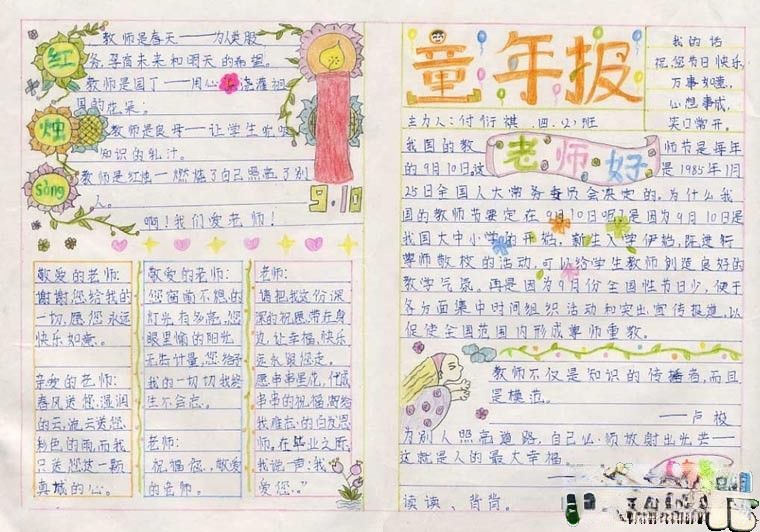 红
烛
Song
教师是春天——为人类服
务,孕育未来和明天的希望。
教师是园丁——用心浇灌祖
国的花朵。
教师是良母——让学生吮吸
知识的乳汁。
教师是红烛——燃烧了自己照亮了别
人。
啊!我们爱老师!
9.10
敬爱的老师:
谢谢您给我的
一切,愿您永远
快乐如意。
亲爱的老师:
春风送您湿润
的云,波云送您
彩色的雨,而我
只送您这一颗
真城的心。
敬爱的老师:
您窗前不熄的
灯光,有多亮,您
眼里愉的阳光
无法计量,您给予
我的一切切我终
生不会忘。
老师:
祝福您,敬爱
的老师。
老师:
请把我这份深
深的祝愿带在身
边,让幸福、快乐
永永跟您走。
愿串串星花,化成
串串的祝福,带给
我难忘的白发恩
师,在毕业之际
我说一声:我
爱您!"
童年报
我的话
祝您节日快乐
万事如意,
心想事成,
笑口常开。
主力人:付衍棋 四、(2)班
老师好
我国的教师节是每年
的9月10日,这是1985年1月
25日全国人大常务委员会决定的。为什么我
国的教师节要定在9月10日呢?是因为9月10日是
我国大中小学的开始,新生入学伊始,陈进行
尊师敬校的活动,可以给学生教师创造良好的
教学气氛。再是因为9月份全国性节日少,便于
各方面集中时间组织活动和突出宣传报道,以
促使全国范围内形成尊师重教。
教师不仅是知识的传播者,而且
是模范。
——卢梭
为别人照亮道路,自己必须放射出光芒——
这就是人的最大幸福。
读读、背背。